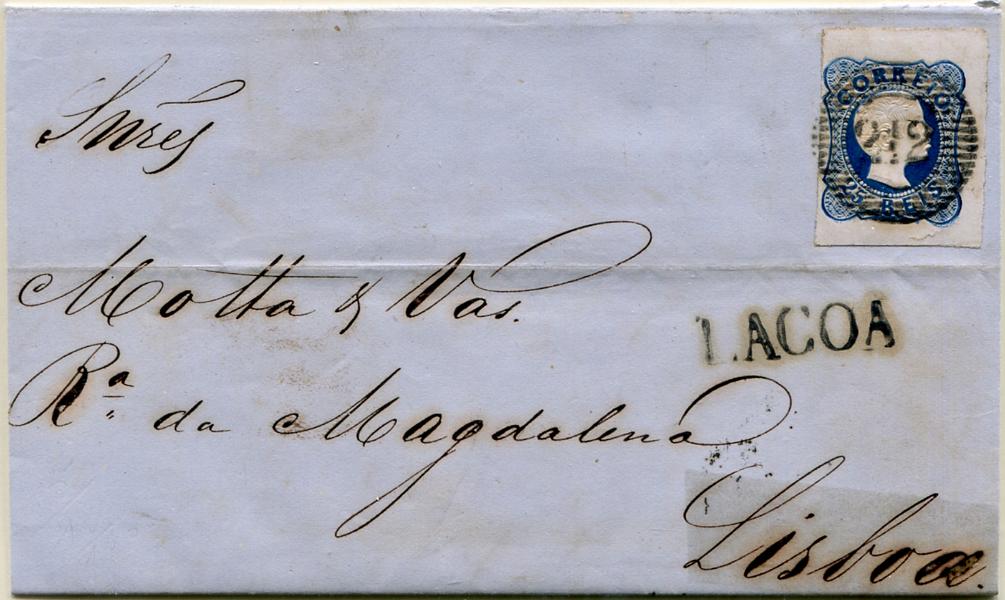 CORREIO
212
25 REIS
Snres
Motta & Vas.
LAGOA
Rª da Magdalena
Lisboa.